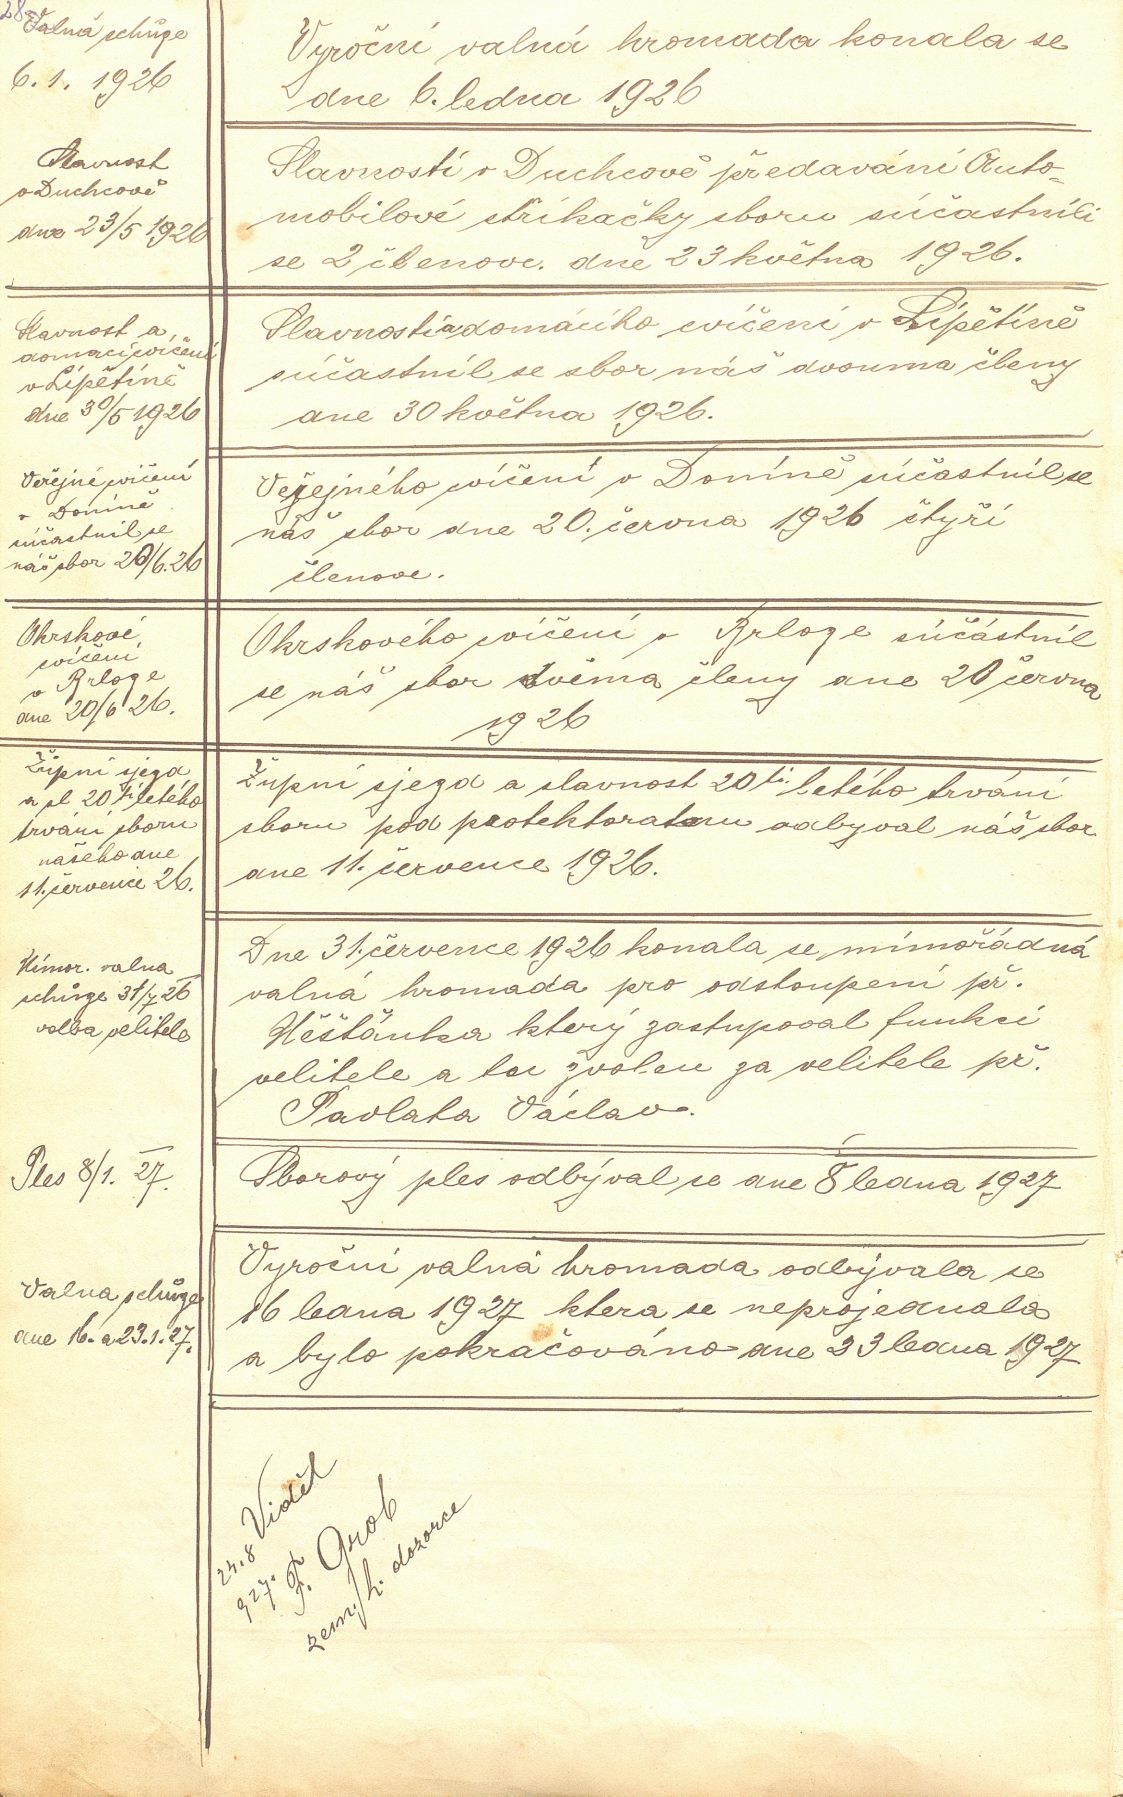 28
Valná schůze
6. 1. 1926
Vyroční valná hromada konala se
dne 6. ledna 1926
Slavnost
v Duchcově
dne 23/5 1926
Slavnosti v Duchcově předavání Auto-
mobilové stříkačky sboru súčastnili
se 2 členove. dne 23 května 1926.
Slavnost a
domací cvičení
v Lipětíně
dne 30/5 1926
Slavnosti a domácího cvičení v Lipětíně
súčastnil se sbor náš dvouma členy
dne 30 května 1926.
Veřejné cvičení
v Doníně
súčastnil se
náš sbor 20/6. 26
Veřejného cvičení v Doníně súčastnil se
náš sbor dne 20. června 1926 čtyří
členove.
Okrskové
cvičení
v Brloze
dne 20/6 26.
Okrskového cvičení v Brloze súčástnil
se náš sbor dvěma členy dne 20 června
1926
Župní sjezd
a sl 20 ti letého
trvání sboru
našeho dne
11. července 26.
Župní sjezd a slavnost 20 ti. letého trvání
sboru pod protektoratem odbyval náš sbor
dne 11. července 1926.
Mimor. valna
schůze 31/7 26
volba velitele
Dne 31. července 1926 konala se mimořádná
valná hromada pro odstoupení př.
Měšťánka který zastupoval funkci
velitele a tu zvolen za velitele př.
Pavlata Václav.
Ples 8/1. 27.
Sborový ples odbýval se dne 8 ledna 1927
Valna schůze
dne 16. a 23. 1. 27.
Vyroční valná hromada odbývala se
16 ledna 1927 ktera se neprojednala
a bylo pokračováno dne 23 ledna 1927
Viděl
24. 8
927. F. Grob
zem. h. dozorce